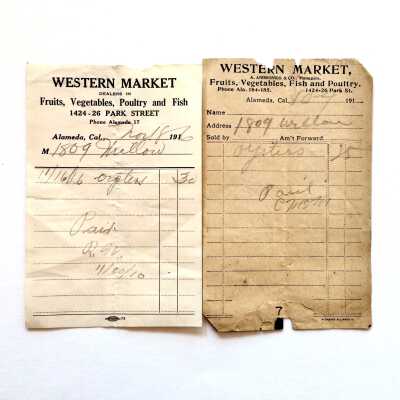 WESTERN MARKET
DEALERS IN
Fruits, Vegetables, Poultry and Fish
1424-26 PARK STREET
Phone Alameda 17
Alameda, Cal., Nov 8 1916
M 1809 Willow
11/16/16 Oysters 30
Paid
WESTERN MARKET,
Fruits, Vegetables, Fish and Poultry.
Phone Ala. 184-185. 1424-26 Park St.
Alameda, Cal. 191
Name
Address 1809 Willow
Sold by Am't Forward
Oysters 25
Paid
7